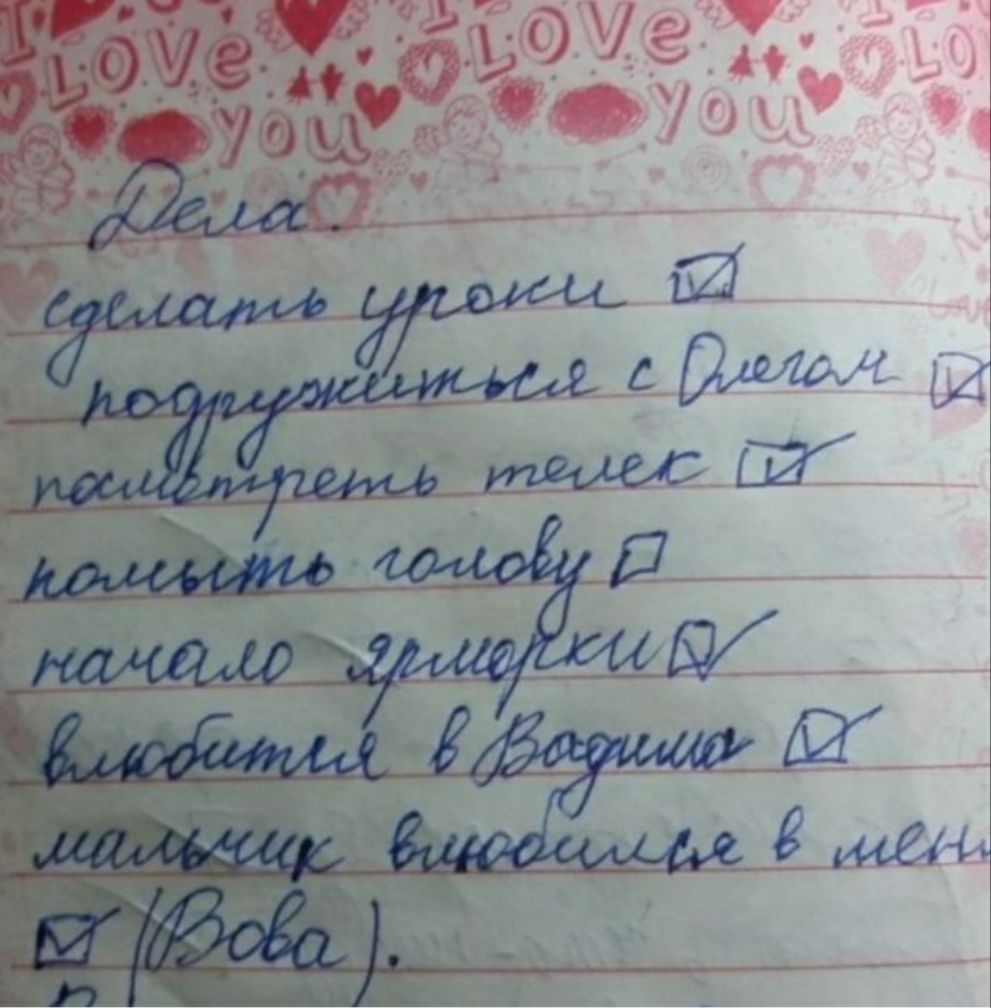 I I I
LOVE LOVE LO
YOU YOU
Дела.
сделать уроки ☑
подружиться с Олегом ☑
посмотреть телек ☑
помыть голову ☐
начало ярморки ☑
влюбится в Вадима ☑
мальчик влюбился в мен
☑ (Вова).